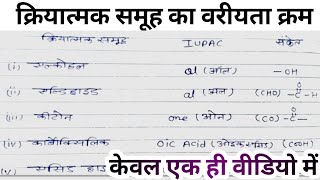 क्रियात्मक समूह का वरीयता क्रम
क्रियात्मक समूह IUPAC संकेत
(i) एल्कोहल ol (ऑल) -OH
(ii) एल्डिहाइड al (अल) (CHO) -C-H
O
(iii) कीटोन one (ओन) (CO) -C-
O
(iv) कार्बोक्सिलिक Oic Acid (ओइक एसिड) (COOH)
(v)
केवल एक ही वीडियो में